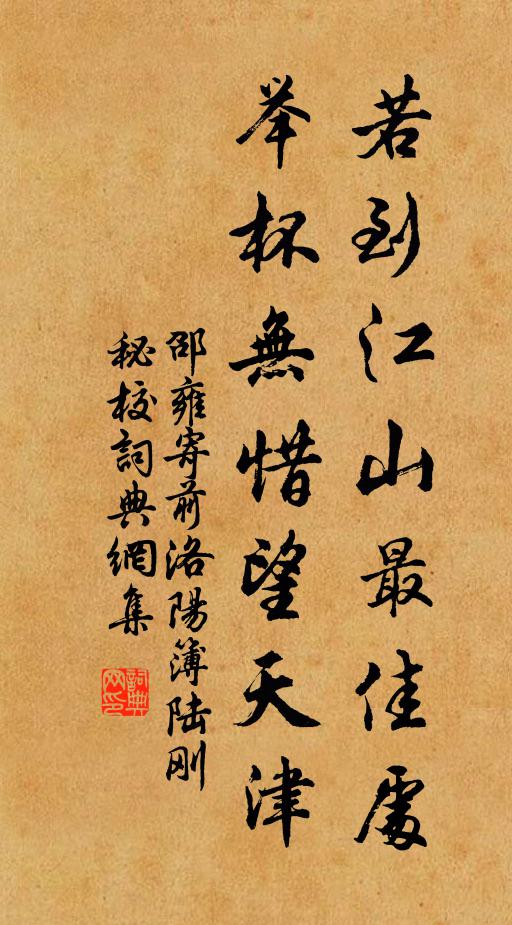 若到江山最佳處
举杯無惜望天津
邵雍寄前洛陽簿陆刚
秘校詞典網集
詞典
网印